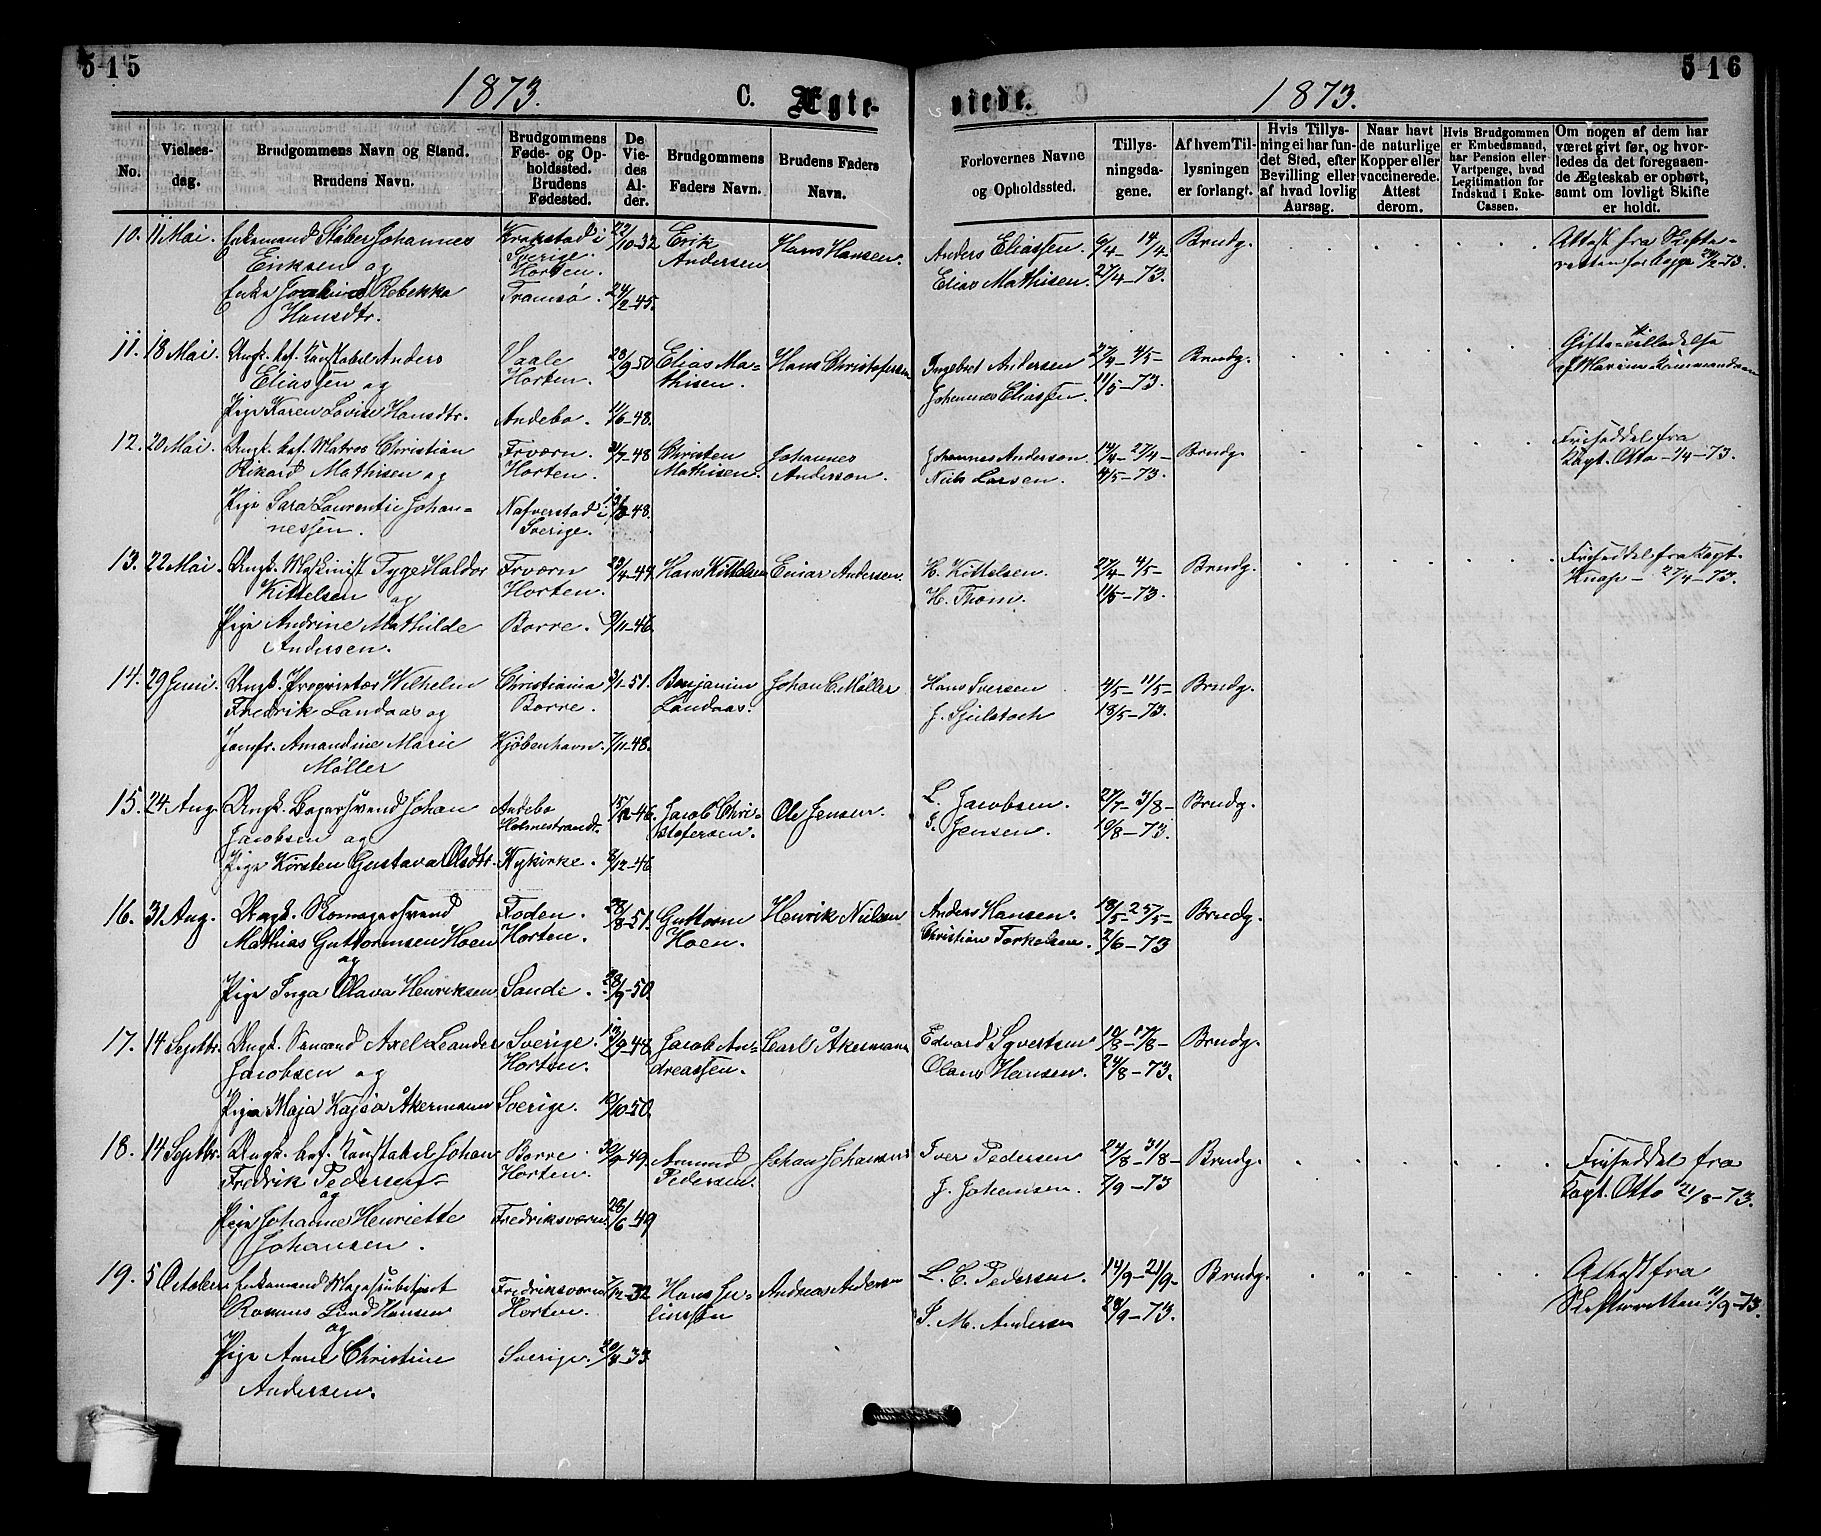 515
1873.
C. Ægte-
No.
Vielses-
dag.
Brudgommens Navn og Stand.
Brudens Navn.
Brudgommens
Føde- og Op-
holdssted.
Brudens
Fødested.
De
Vie-
des
Al-
der.
Brudgommens
Faders Navn.
Brudens Faders
Navn.
10. 11 Mai. Enkemand Støber Johannes Krokstad i 22/10-32 Erik Hans Hansen.
Eriksen og Sverige. Andersen
Horten.
Enke Rebekka Tromsø. 24/2-45.
Hansdtr.
11. 18 Mai. Ungk. Konstabel Anders Vaale 23/9-50 Elias Ma- Hans Christofersen
Eliassen og Horten. thisen.
Pige Karen Lovise Hansdtr. Andebo. 11/6-48.
12. 20 Mai. Ungk. Matros Christian Frværn. 31/7-48 Christen Johannes
Rikard Mathisen og Horten. Mathisen. Anderson.
Pige Sara Laurentie Johan- Nafverstad i
nessen. Sverige.
13. 22 Mai. Ungk. Maskinist Tyge Haldor Frværn 23/4-49 Hans Kittelsen Einar Andersen.
Kittelsen og Horten.
Pige Andrine Mathilde Borre. 9/11-46.
Andersen.
14. 29 Juni. Ungk. Proprietær Wilhelm Christiania 9/1-51. Benjamin Johan C. Møller
Fredrik Landaas og Borre. Landaas.
Jomfr. Amandine Marie Kjøbenhavn. 7/11-48.
Møller
15. 24. Aug. Ungk. Bagersvend Johan Andebo Jacob Chri- Ole Jensen.
Jacobsen og Holmestrand. stofersen.
Pige Kirsten Gustava Olsdtr. Nykirke. 8/12-46
16. 31. Aug. Ungk. Skomagersvend Foden. 28/8-51. Guttorm Henrik Nielsen
Mathias Guttormsen Hoen Horten. Hoen.
og
Pige Inga Olava Henriksen Sande. 28/9-50.
17. 14 Septbr. Ungk. Sømand Axel Leander Sverige. 13/9-48 Jacob An- Carl Åkermann
Jacobsen og Horten. dreassen.
Pige Maja Kajsa Åkermann Sverige. 19/10-50.
18. 14 Septbr. Ungk. Konstabel Johan Borre. 30/9-49. Amund Johan Johansen
Fredrik Pedersen Horten. Pedersen.
og
Pige Johanne Henriette Fredriksværn. 28/6-49
Johansen.
19. 5 October Enkemand Magasinbetjent Fredriksværn 7/12-32 Hans Ju- Andreas Andersen
Rasmus Lund Hansen Horten. liussen
og
Pige Anne Christine Sverige. 20/4-33
Andersen.
516
viede.
1873.
Forlovernes Navne
og Opholdssted.
Tillys-
ningsda-
gene.
Af hvem Til-
lysningen
er forlangt.
Hvis Tillys-
ning ei har fun-
det Sted, efter
Bevilling eller
af hvad lovlig
Aarsag.
Naar havt
de naturlige
Kopper eller
vaccinerede.
Attest
derom.
Hvis Brudgommen
er Embedsmand,
har Pension eller
Vartpenge, hvad
Legitimation for
Indskud i Enke-
Cassen.
Om nogen af dem har
været givt før, og hvor-
ledes da det foregaaen-
de Ægteskab er ophørt,
samt om lovligt Skifte
er holdt.
Anders Eliassen. 6/4- 14/4- Brudg. Attest fra Skifte-
Elias Mathisen. 27/4-73. retten for begge 24/2-73.
Ingebret Andersen 27/4- 4/5- Brudg. Gifte-tilladelse
Johannes Eliassen. 11/5-73. af Marine-Kommandoen
Johannes Anderson. 14/4- 27/4- Brudg. Friseddel fra
Niels Larsen. 4/5-73. Kapt. Otto 1/4-73.
H. Kittelsen. 27/4- 4/5- Brudg. Friseddel fra Kapt.
H. Thom. 11/5-73. Knap- 27/4-73.
Hans Iversen 4/5- 11/5- Brudg.
18/5-73.
L. Jacobsen. 27/7- 3/8- Brudg.
J. Jensen. 10/8-73.
Anders Hansen. 18/5- 25/5- Brudg.
Christian Torkelsen. 2/6-73
Edvard Syvertsen 10/8- 17/8- Brudg.
Olans Hansen. 24/8-73.
Iver Pedersen 24/8- 31/8- Brudg. Friseddel fra
J. Johansen. 7/9-73 Kapt. Otto 21/8-73.
L. C. Pedersen. 14/9- 21/9- Brudg. Attest fra
S. M. Andersen 28/9-73. Skifteretten 11/9-73.